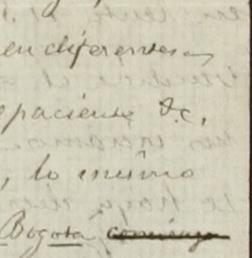 en diferentes
paciente &c,
, lo mismo
Bogota comienza